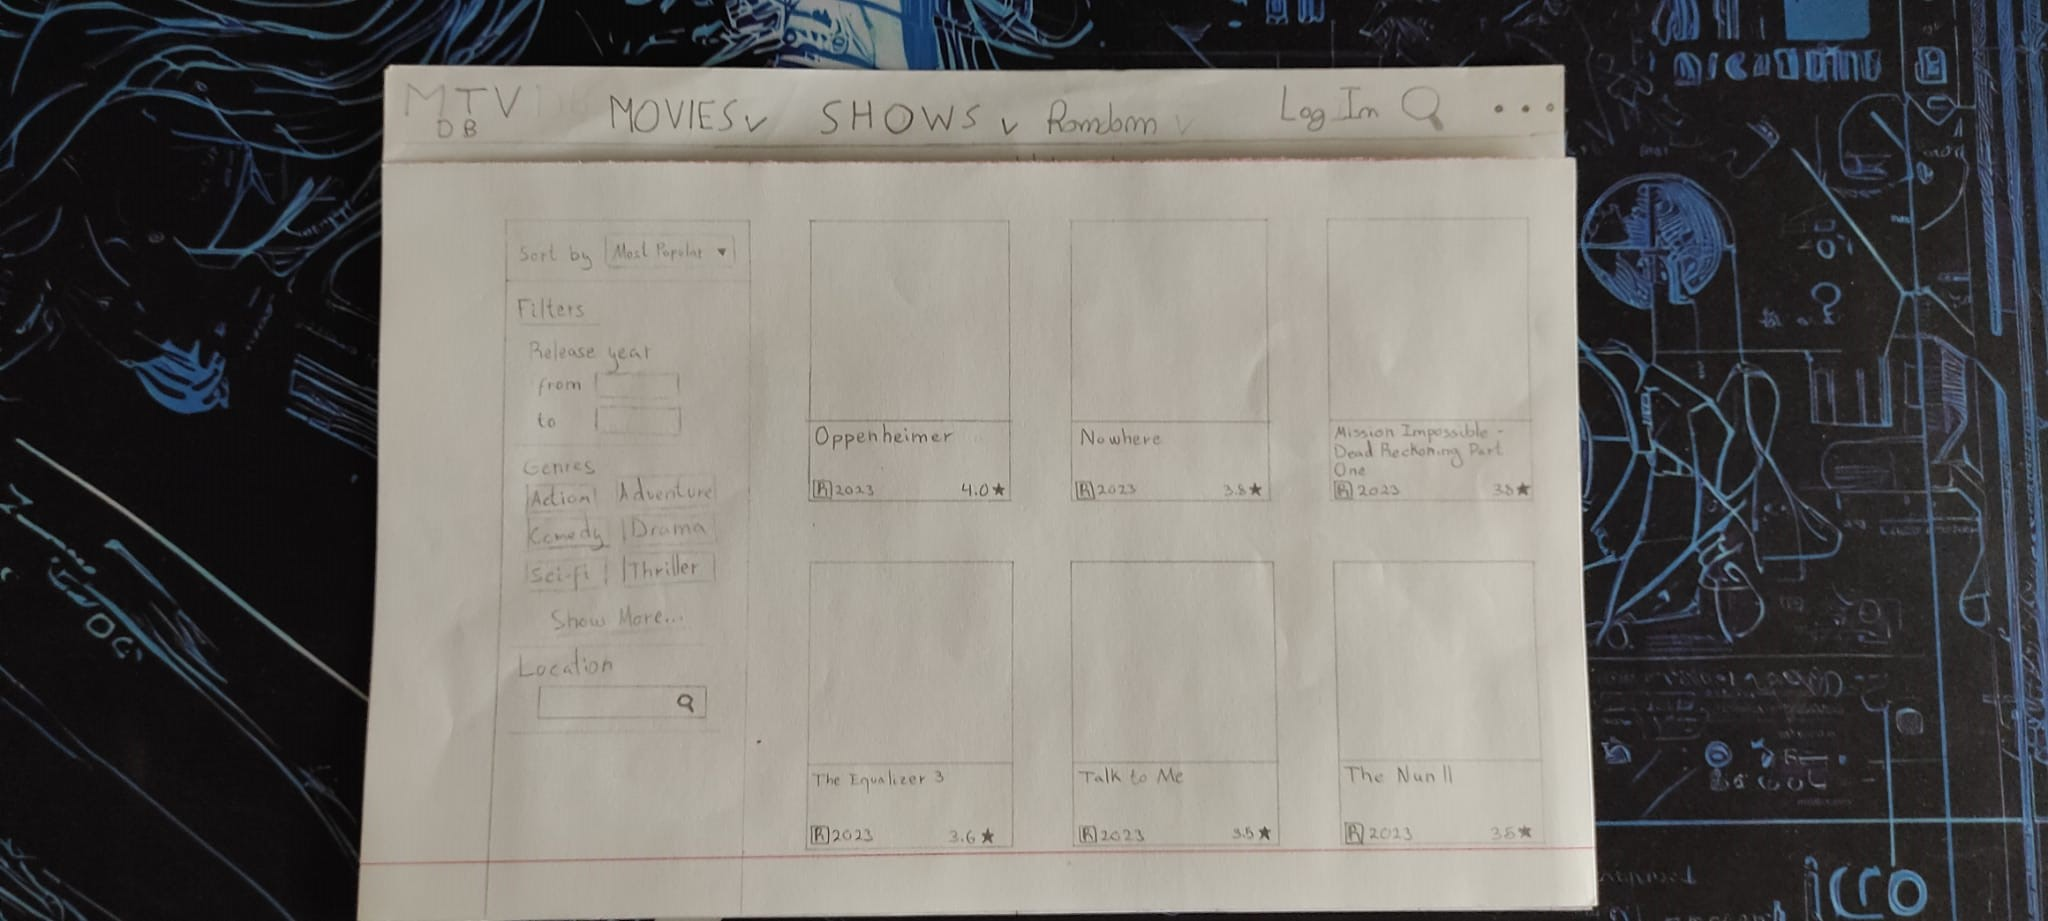 MTV
DB
MOVIES
SHOWS
Random
Log In
Sort by Most Popular
Filters
Release year
from
to
Genres
Action Adventure
Comedy Drama
Sci-fi Thriller
Show More...
Location
Oppenheimer
R 2023 4.0★
Nowhere
R 2023 3.8★
Mission Impossible -
Dead Reckoning Part
One
R 2023 3.8★
The Equalizer 3
R 2023 3.6★
Talk to Me
R 2023 3.5★
The Nun II
R 2023 3.5★